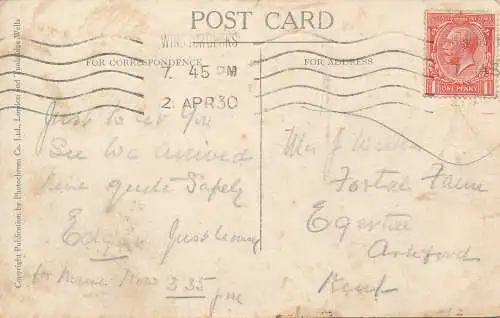 POST CARD
WINDSOR BERKS
7. 45 PM
2 APR 30
FOR CORRESPONDENCE
FOR ADDRESS
ONE PENNY
Copyright Publication by Photochrom Co. Ltd., London and Tunbridge Wells
Just to let You
See We arrived
here quite Safely
Edgar Just
3 35
pm
Mrs J
Farm
Egerton
Ashford
Kent